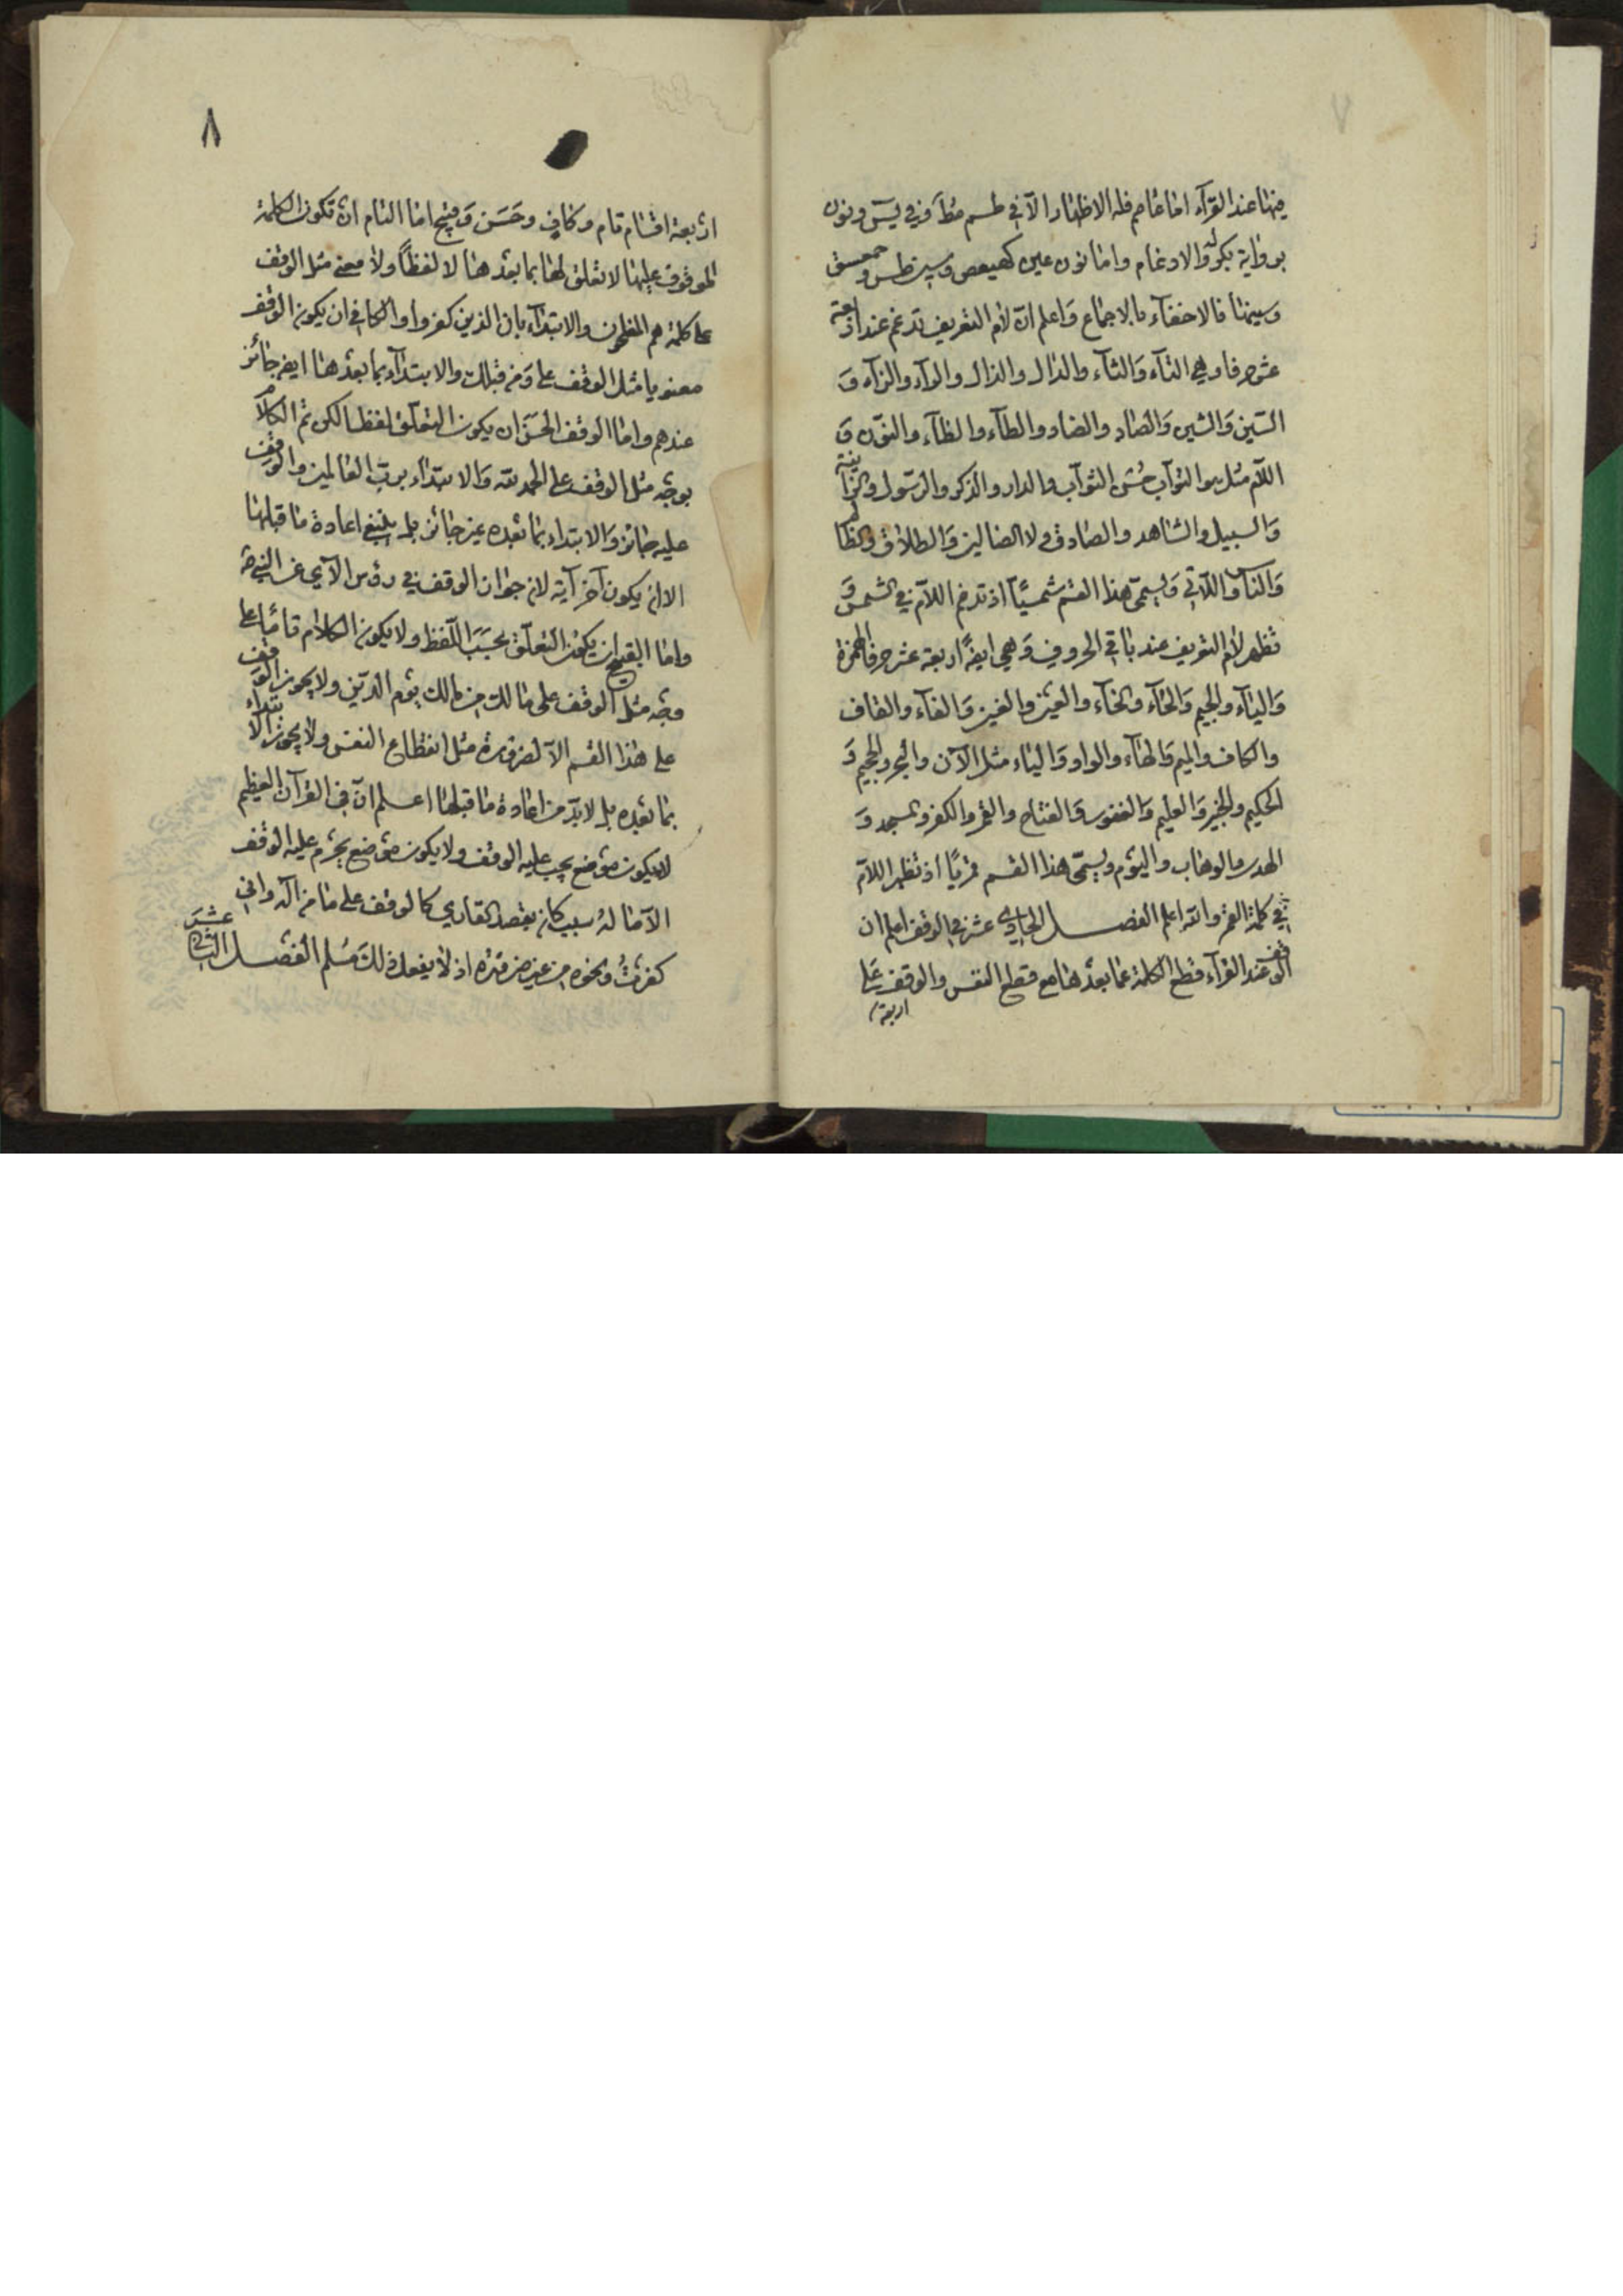 ٧
منها عند القرآء اما عاصم فله الاظهار الا في طسم مط وفي يس ونون
برواية بكر له والادغام واما نون عين كهيعص وسين طس و حمعسق
وسينها فالاخفاء بالاجماع واعلم ان لام التعريف تدغم عند اربعة
عشر حرفا وهي التآء والثآء والدال والذال والرآء والزآء و
السين والشين والصاد والضاد والطآء والظآء والنون و
اللام مثل هو التوآب حسن الثوآب والدار والذكر والرسول والزانية
والسبيل والشاهد والصادق ولا الضالين والطلاق والظالم
والناس واللاتي ويسمى هذا القسم شمسيا اذ تدغم اللام في الشمس و
تظهر لام التعريف عند باقي الحروف وهي ايضا اربعة عشر حرفا الهمزة
والبآء والجيم والحآء والخآء والعين والغين والفآء والقاف
والكاف والميم والهآء والواو واليآء مثل الآن والبحر والجحيم و
الحكيم والخبير والعليم والغفور والفتاح والقمر والكفر والمسجد و
الهدى والوهاب واليوم ويسمى هذا القسم قمريا اذ تظهر اللام
في كلمة القمر والله اعلم الفصل الحادي عشر في الوقف اعلم ان
الوقف عند القرآء قطع الكلمة عما بعدها مع قطع النفس والوقف على
اربعة
٨
اربعة اقسام تام وكافي وحسن وقبيح اما التام ان تكون الكلمة
الموقوف عليها لا تعلق لها بما بعدها لا لفظا ولا معنى مثل الوقف
على كلمة هم المفلحون والابتدآء بان الذين كفروا والكافي ان يكون الوقف
معنويا مثل الوقف على ومن قبلك والابتدآء بما بعدها ايضا جائز
عندهم واما الوقف الحسن ان يكون التعلق لفظا لكن تم الكلام
بوجه مثل الوقف على الحمد لله والابتداء برب العالمين والوقف
عليه جائز والابتداء بما بعده غير جائز بل ينبغي اعادة ما قبلها
الا ان يكون آخر آية لان جواز الوقف في رؤس الآي عن النبي ص
واما القبيح ان يكون التعلق بحسب اللفظ ولا يكون الكلام قائما على
وجه مثل الوقف على مالك من مالك يوم الدين ولا يجوز الوقف
على هذا القسم الا لضرورة مثل انقطاع النفس ولا يجوز الابتداء
بما بعده بل لابد من اعادة ما قبلها اعلم ان في القرآن العظيم
لا يكون موضع يجب عليه الوقف ولا يكون موضع يحرم عليه الوقف
الا ما له سبب كان يقصد القاري كالوقف على ما من اله واني
كفرت ونحوه من غير ضرورة اذ لا يفعل ذلك مسلم الفصل الثاني عشر